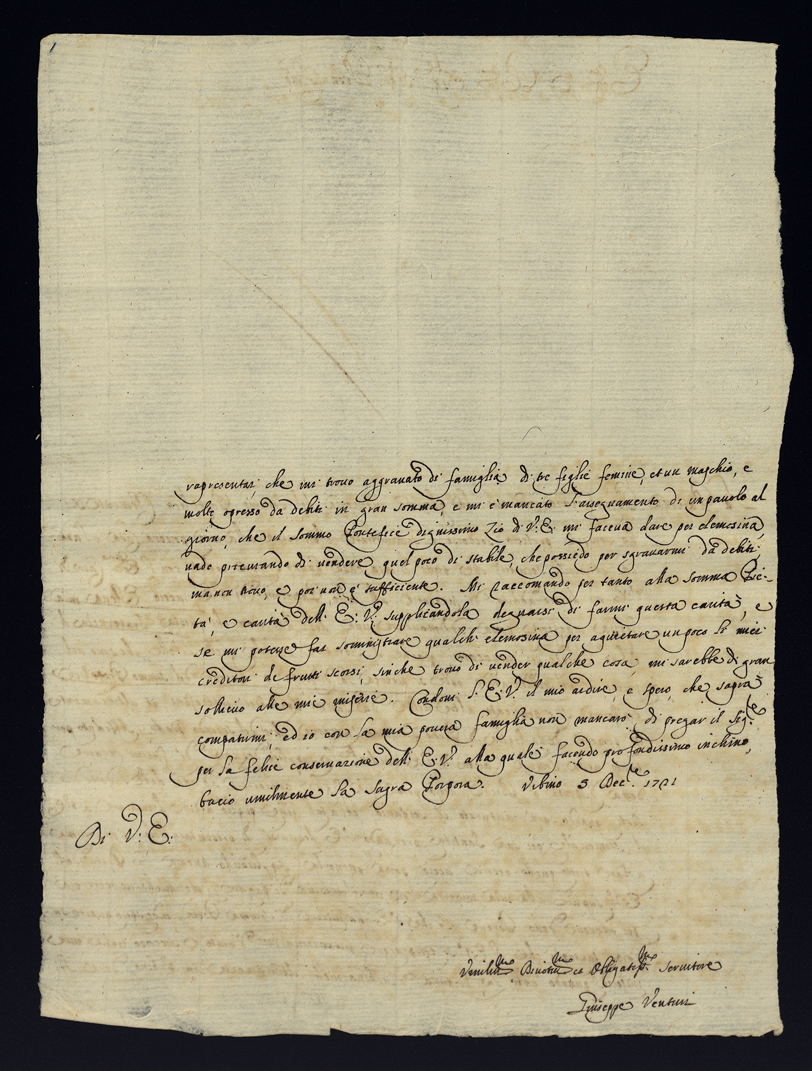 rapresentai che mi trovo aggravato di famiglia di tre figlie femine, et un maschio, e
molte opresso da debiti in gran somma, e mi e' mancato l'assegnamento di un pavolo al
giorno, che il sommo Pontefice dignissimo Zio di V: E: mi faceva dare per elemosina,
vado procurando di vendere quel poco di stabile, che possiedo per sgravarmi da debiti
ma non trovo, e poi non e' sufficiente. Mi raccomando per tanto alla somma Pie-
tà, e carità dell' E: V: supplicandola degnarsi di farmi questa carità, e
se mi potesse far somministrare qualch' elemosina per aquietare un poco li miei
creditori de frutti scorsi, sinche trovo di vender qualche cosa mi sarebbe di gran
sollievo alle mie miserie. Condoni l'E: V: il mio ardire, e spero, che saprà
compatirmi, ed io con la mia povera famiglia non mancarò di pregar il Sig:re
per la felice conservazione dell' E: V: alla quale facendo profondissimo inchino,
bacio umilmente la sagra Porpora. Urbino 3 Dec:re 1721
Di V: E:
Umiliss:mo Devotiss:mo et Obligatiss:mo Servitore
Giuseppe Venturi